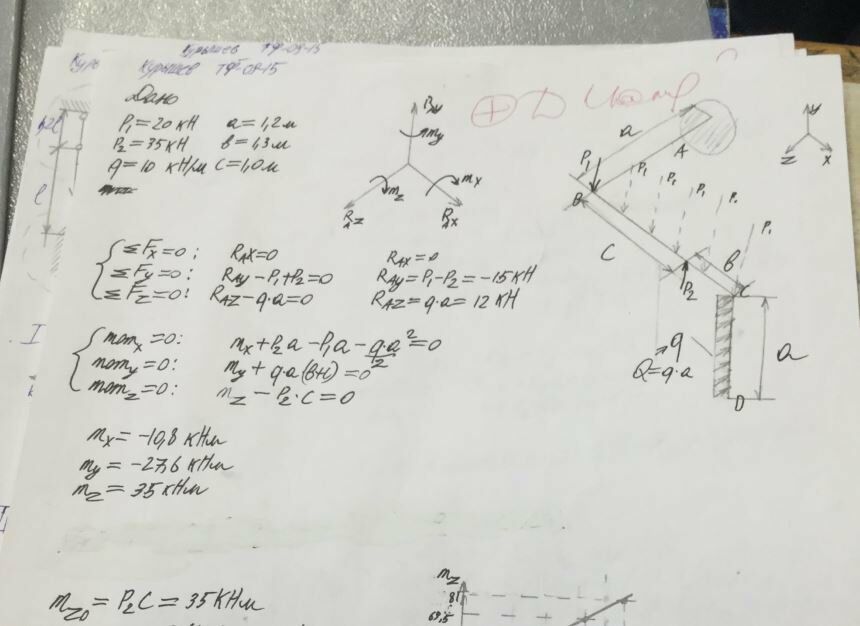 Курышев ТФ-09-15
Курышев ТФ-09-15
Дано
P₁=20 кН a=1,2м
P₂=35кН в=1,3м
q=10 кН/м C=1,0м
By
my
mz
mx
RAZ
RAX
⊕
a
A
P₁
B
P₁
P₁
P₁
P₁
P₁
C
в
P₂
C
y
z
x
q
Q=q·a
a
D
ΣFx=0: RAX=0 RAX=0
ΣFy=0: RAy-P₁+P₂=0 RAy=P₁-P₂=-15кН
ΣFz=0: RAZ-q·a=0 RAZ=q·a=12 кН
momx=0: mx+P₂a-P₁a-q·a²/2=0
momy=0: my+q·a(в+1)=0
momz=0: mz-P₂·C=0
mx=-10,8 кНм
my=-27,6 кНм
mz=35кНм
mz0=P₂C=35кНм
mz
81
69,5
l
I